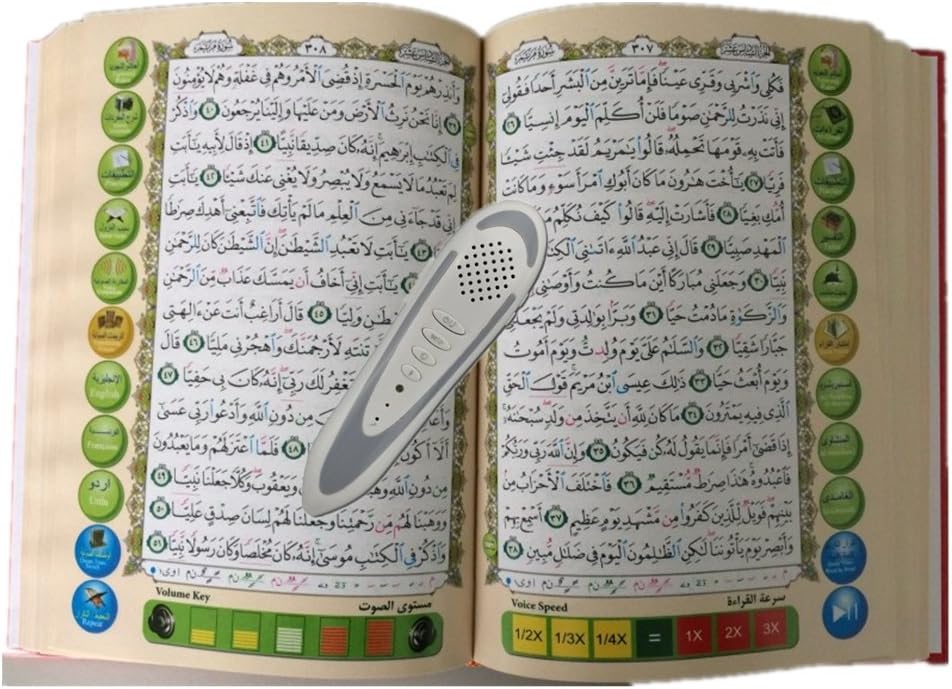 الجزء السادس عشر ٣٠٧ سورة مريم
فَكُلِي وَاشْرَبِي وَقَرِّي عَيْنًا فَإِمَّا تَرَيِنَّ مِنَ الْبَشَرِ أَحَدًا فَقُولِي
إِنِّي نَذَرْتُ لِلرَّحْمَٰنِ صَوْمًا فَلَنْ أُكَلِّمَ الْيَوْمَ إِنسِيًّا ٢٦
فَأَتَتْ بِهِ قَوْمَهَا تَحْمِلُهُ قَالُوا يَا مَرْيَمُ لَقَدْ جِئْتِ شَيْئًا
فَرِيًّا ٢٧ يَا أُخْتَ هَارُونَ مَا كَانَ أَبُوكِ امْرَأَ سَوْءٍ وَمَا كَانَتْ
أُمُّكِ بَغِيًّا ٢٨ فَأَشَارَتْ إِلَيْهِ قَالُوا كَيْفَ نُكَلِّمُ
الْمَهْدِ صَبِيًّا ٢٩ قَالَ إِنِّي عَبْدُ اللَّهِ آتَانِيَ
نَبِيًّا ٣٠ وَجَعَلَنِي مُبَارَكًا أَيْنَ مَا كُنتُ وَأَوْصَانِي
وَالزَّكَاةِ مَا دُمْتُ حَيًّا ٣١ وَبَرًّا بِوَالِدَتِي وَلَمْ يَجْعَلْنِي
جَبَّارًا شَقِيًّا ٣٢ وَالسَّلَامُ عَلَيَّ يَوْمَ وُلِدتُّ وَيَوْمَ أَمُوتُ
وَيَوْمَ أُبْعَثُ حَيًّا ٣٣ ذَٰلِكَ عِيسَى ابْنُ مَرْيَمَ قَوْلَ الْحَقِّ
الَّذِي فِيهِ يَمْتَرُونَ ٣٤ مَا كَانَ لِلَّهِ أَن يَتَّخِذَ مِن وَلَدٍ سُبْحَانَهُ
إِذَا قَضَىٰ أَمْرًا فَإِنَّمَا يَقُولُ لَهُ كُن فَيَكُونُ ٣٥ وَإِنَّ اللَّهَ رَبِّي وَرَبُّكُمْ
فَاعْبُدُوهُ هَٰذَا صِرَاطٌ مُّسْتَقِيمٌ ٣٦ فَاخْتَلَفَ الْأَحْزَابُ مِن
بَيْنِهِمْ فَوَيْلٌ لِّلَّذِينَ كَفَرُوا مِن مَّشْهَدِ يَوْمٍ عَظِيمٍ ٣٧ أَسْمِعْ بِهِمْ
وَأَبْصِرْ يَوْمَ يَأْتُونَنَا لَٰكِنِ الظَّالِمُونَ الْيَوْمَ فِي ضَلَالٍ مُّبِينٍ ٣٨
Voice Speed سرعة القراءة
1/2X 1/3X 1/4X = 1X 2X 3X
القراءات
التطبيقات
التفسير
المنشاوي
الغامدي
الجزء السادس عشر ٣٠٨ سورة مريم
وَأَنذِرْهُمْ يَوْمَ الْحَسْرَةِ إِذْ قُضِيَ الْأَمْرُ وَهُمْ فِي غَفْلَةٍ وَهُمْ لَا يُؤْمِنُونَ
٣٩ إِنَّا نَحْنُ نَرِثُ الْأَرْضَ وَمَنْ عَلَيْهَا وَإِلَيْنَا يُرْجَعُونَ ٤٠ وَاذْكُرْ
فِي الْكِتَابِ إِبْرَاهِيمَ إِنَّهُ كَانَ صِدِّيقًا نَّبِيًّا ٤١ إِذْ قَالَ لِأَبِيهِ يَا أَبَتِ
لِمَ تَعْبُدُ مَا لَا يَسْمَعُ وَلَا يُبْصِرُ وَلَا يُغْنِي عَنكَ شَيْئًا ٤٢ يَا أَبَتِ
إِنِّي قَدْ جَاءَنِي مِنَ الْعِلْمِ مَا لَمْ يَأْتِكَ فَاتَّبِعْنِي أَهْدِكَ صِرَاطًا
٤٣ يَا أَبَتِ لَا تَعْبُدِ الشَّيْطَانَ إِنَّ الشَّيْطَانَ كَانَ لِلرَّحْمَٰنِ
يَا أَبَتِ إِنِّي أَخَافُ أَن يَمَسَّكَ عَذَابٌ مِّنَ الرَّحْمَٰنِ
وَلِيًّا ٤٥ قَالَ أَرَاغِبٌ أَنتَ عَنْ آلِهَتِي
تَنتَهِ لَأَرْجُمَنَّكَ وَاهْجُرْنِي مَلِيًّا ٤٦ قَالَ
لَكَ رَبِّي إِنَّهُ كَانَ بِي حَفِيًّا ٤٧
مِن دُونِ اللَّهِ وَأَدْعُو رَبِّي عَسَىٰ
أَلَّا أَكُونَ ٤٨ فَلَمَّا اعْتَزَلَهُمْ وَمَا يَعْبُدُونَ
مِن دُونِ اللَّهِ وَيَعْقُوبَ وَكُلًّا جَعَلْنَا نَبِيًّا ٤٩
وَوَهَبْنَا لَهُم مِّن رَّحْمَتِنَا وَجَعَلْنَا لَهُمْ لِسَانَ صِدْقٍ عَلِيًّا ٥٠
وَاذْكُرْ فِي الْكِتَابِ مُوسَىٰ إِنَّهُ كَانَ مُخْلَصًا وَكَانَ رَسُولًا نَّبِيًّا ٥١
Volume Key مستوى الصوت
التطبيقات
الإنجليزية
English
فرنسية
Française
اردو
Urdu
Repeat